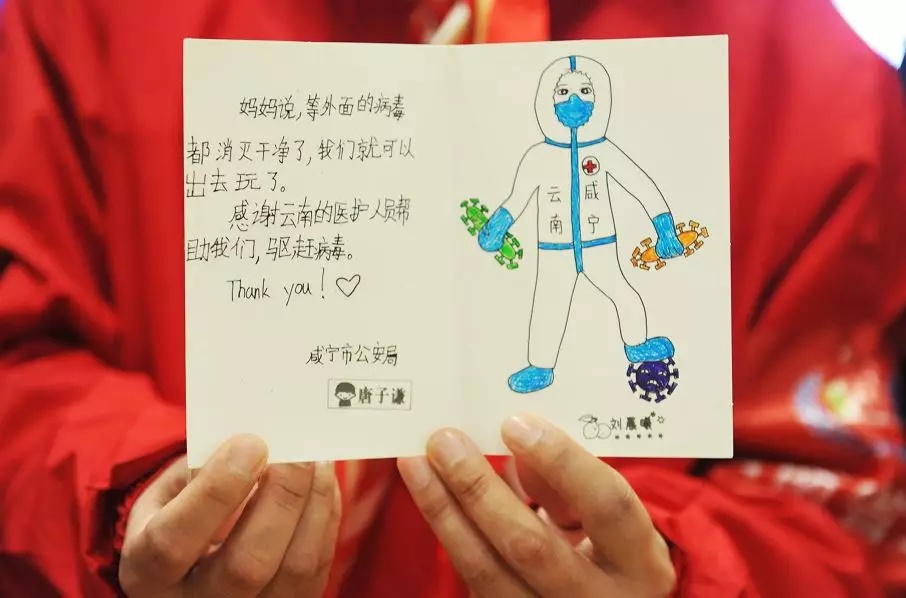 妈妈说,等外面的病毒
都消灭干净了,我们就可以
出去玩了。
感谢云南的医护人员帮
助我们,驱赶病毒。
Thank you!♡
咸宁市公安局
唐子谦
云南
咸宁
刘晨曦